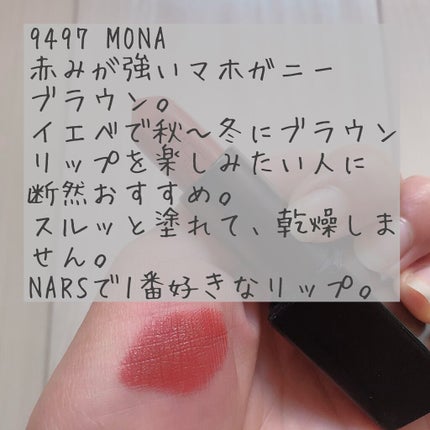 9497 MONA
赤みが強いマホガニー
ブラウン。
イエベで秋〜冬にブラウン
リップを楽しみたい人に
断然おすすめ。
スルッと塗れて、乾燥しま
せん。
NARSで1番好きなリップ。